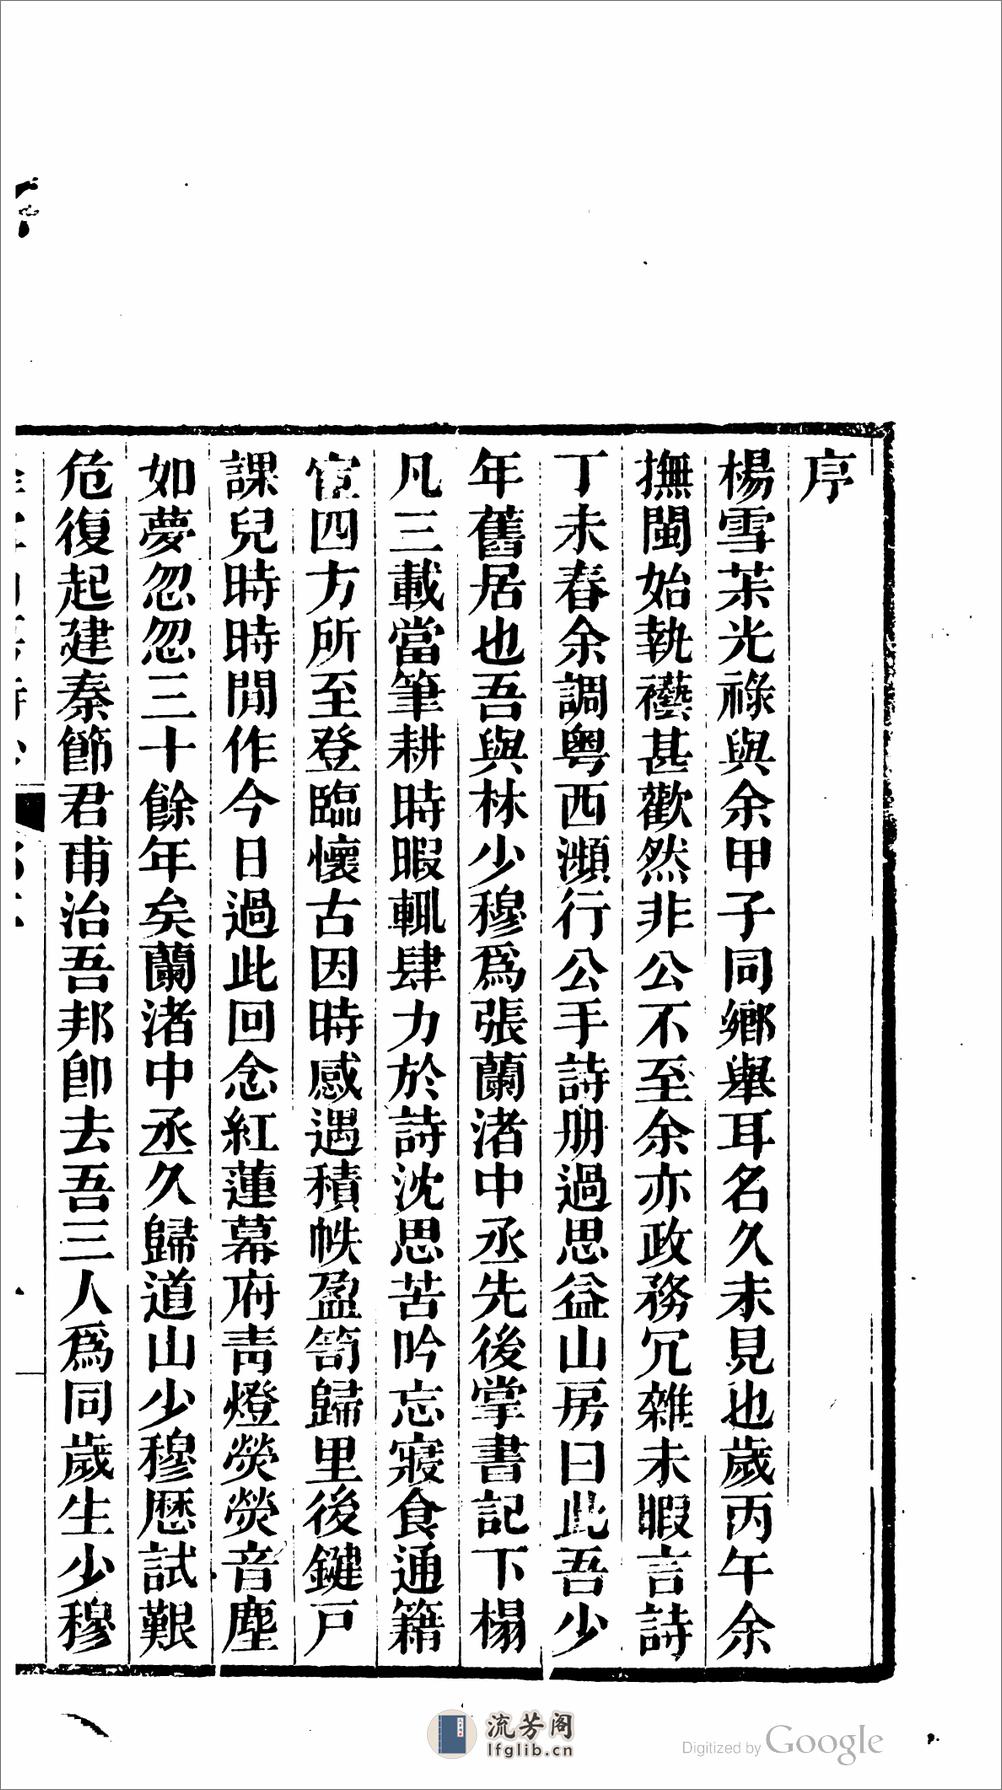 序
楊雪茮光祿與余甲子同鄉舉耳名久未見也歲丙午余
撫閩始執襼甚歡然非公不至余亦政務冗雜未暇言詩
丁未春余調粵西瀕行公手詩册過思益山房曰此吾少
年舊居也吾與林少穆爲張蘭渚中丞先後掌書記下榻
凡三載當筆耕時暇輒肆力於詩沈思苦吟忘寢食通籍
宦四方所至登臨懷古因時感遇積帙盈笥歸里後鍵戸
課兒時時閒作今日過此回念紅蓮幕府靑燈熒熒音塵
如夢忽忽三十餘年矣蘭渚中丞久歸道山少穆歷試艱
危復起建秦節君甫治吾邦卽去吾三人爲同歲生少穆
流芳阁
lfglib.cn
Digitized by Google